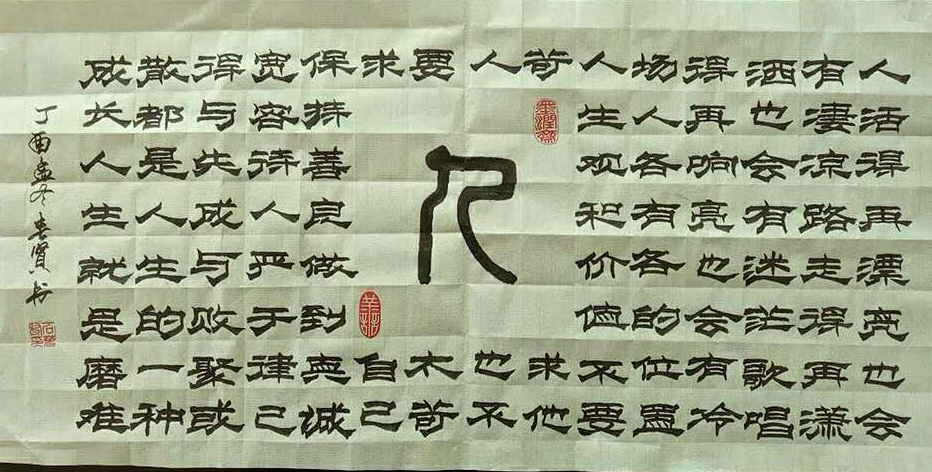 人活得再漂亮也会
有凄凉路走得再潇
洒也会有迷茫歌唱
得再响亮也会有冷
场人各有各的位置
人生观和价值不要
苛求他
人也不
要太苛
求自己
保持善良做到真诚
宽容待人严于律己
得与失成与败聚或
散都是人生的一种
成长人生就是磨难
人
丁酉孟冬贤书